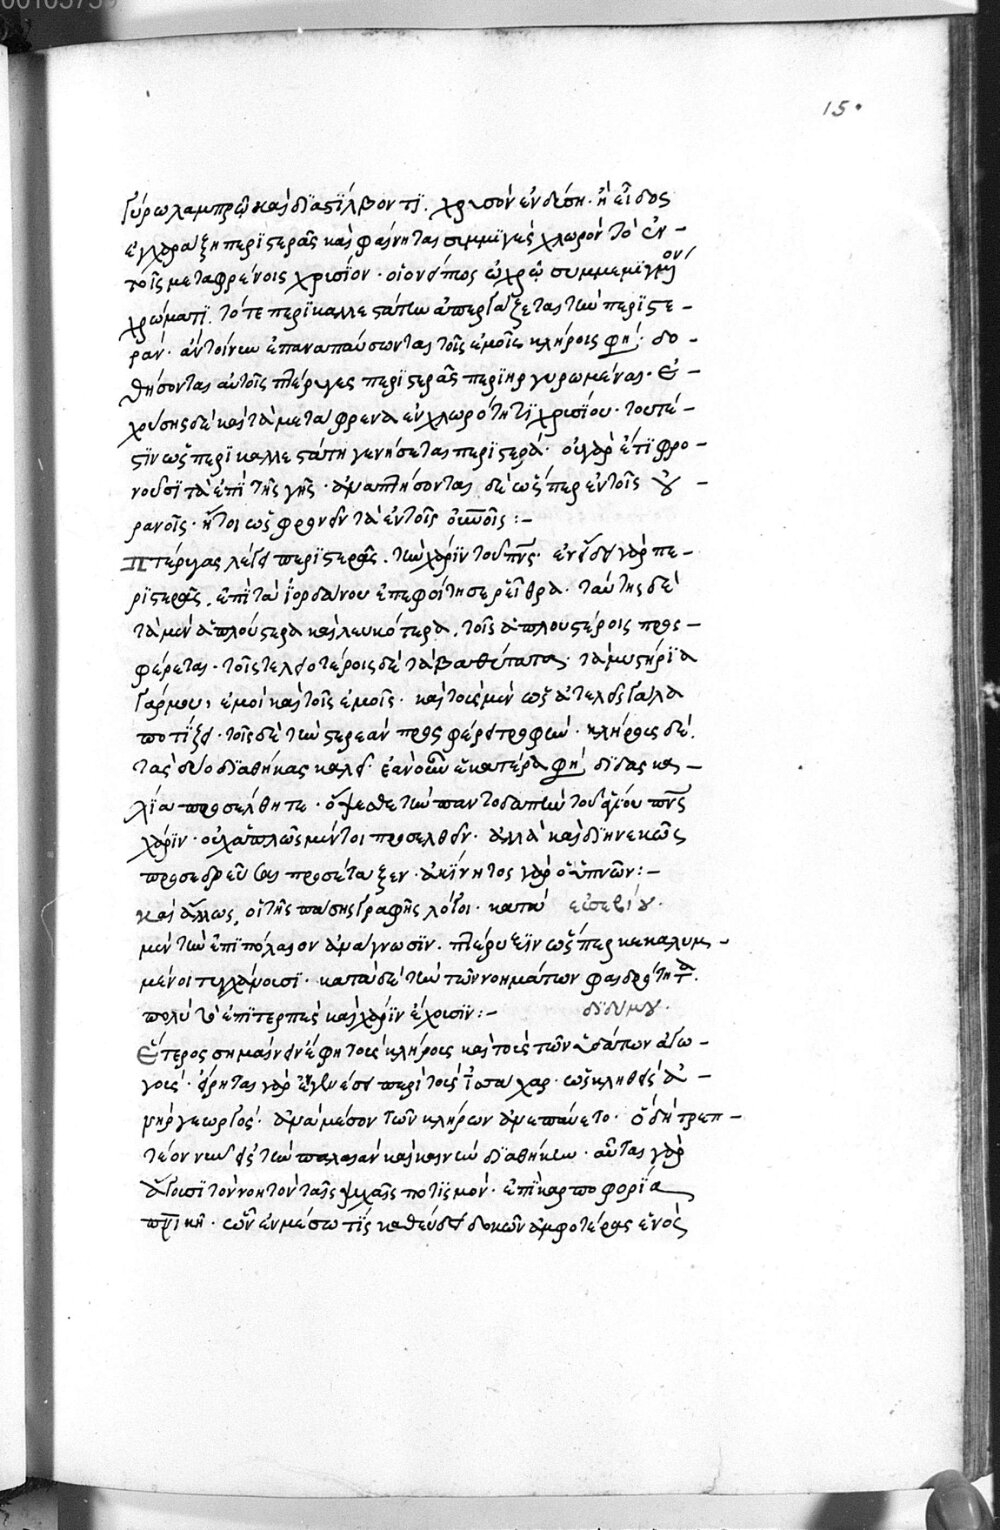 15.
γύρω λαμπρῶ καὶ διαστίλβοντι. χρυσὸν ἐνδέση· ἢ εἶδος
ἐγχαράξη περιστερᾶς καὶ φαίνηται συμμιγὲς χλωρὸν τὸ ἐν
τοῖς μεταφρένοις χρυσίον· οἱονείπως ὠχρῶ συμμεμιγμένον
χρώματι. τότε περικαλλεστάτην ἀπεργάζεται τὴν περιστε-
ράν· ἐπαναπαύσωνται τοῖς ἐμοῖς κλήροις φησί· δο-
θήσονται αὐτοῖς πτέρυγες περιστερᾶς περιηργυρωμέναι· ἐ-
χούσης δὲ καὶ τὰ μετάφρενα ἐν χλωρότητι χρυσίου· τουτέ-
στιν ὡς περικαλλεστάτη γενήσεται περιστερά· οὐ γὰρ ἔτι φρο-
νοῦσι τὰ ἐπὶ τῆς γῆς· ἀναπτήσονται δὲ ὥσπερ ἐν τοῖς οὐ-
ρανοῖς· ἤτοι ὡς φρονεῖν τὰ ἐν τοῖς οὐνοῖς:-
Πτέρυγας λέγει περιστερᾶς. τὴν χάριν τοῦ πνς· ἐν εἴδει γὰρ πε-
ριστερᾶς. ἐπὶ τὰ ἰορδάνου ἐπεφοίτησε ῥεῖθρα· ταύτης δὲ
τὰ μὲν ἁπλούστερα καὶ λευκότερα, τοῖς ἁπλουστέροις προς-
φέρεται· τοῖς τελειοτέροις δὲ τὰ βαθύτατα· τὰ μυστήρια
γάρ μου, ἐμοὶ καὶ τοῖς ἐμοῖς· καὶ τοὺς μὲν ὡς ἀτελεῖς γάλα
ποτίζει· τοῖς δὲ τὴν στερεὰν προσφέρει τροφήν· κλήρους δὲ.
τὰς δύο διαθήκας καλεῖ· ἐὰν οὖν ἑκατέρα φησὶ διδασκα-
λία προσέλθητε· ὄψεσθε τὴν παντοδαπὴν τοῦ ἁγίου πνς
χάριν· οὐχ ἁπλῶς μέντοι προσελθεῖν· ἀλλὰ καὶ διηνεκῶς
προσεδρεῦσαι προσέταξεν· ἀκίνητος γὰρ ὁ ὑπνῶν:-
Καὶ ἄλλως, οἱ τῆς πάσης γραφῆς λόγοι· κατὰ εὐσεβίου·
μὲν τὴν ἐπιπόλαιον ἀνάγνωσιν· ὥσπερ κεκαλυμ-
μένοι τυγχάνουσι· κατὰ δὲ τὴν τῶν νοημάτων φαιδρότητα.
πολὺ τὸ ἐπιτερπὲς καὶ χάριν ἔχουσιν:- διδύμου·
Ἕτερος σημαίνειν ἔφη τοὺς κλήρους καὶ τοὺς τῶν ὑδάτων ἀγω-
γούς· εἴρηται γὰρ
γεωργός· ἀνὰ μέσον τῶν κλήρων ἀνεπαύετο· ὃ δὴ τρεπ-
τέον νῦν εἰς τὴν παλαιὰν καὶ καινὴν διαθήκην· αὗται γὰρ
ἄγουσι τὸν νοητὸν ταῖς ψυχαῖς ποτισμόν· ἐπὶ καρποφορία
πνικῆ· ὧν ἐν μέσω τίς καθεύδει δοκῶν ἀμφοτέρας ἑνὸς